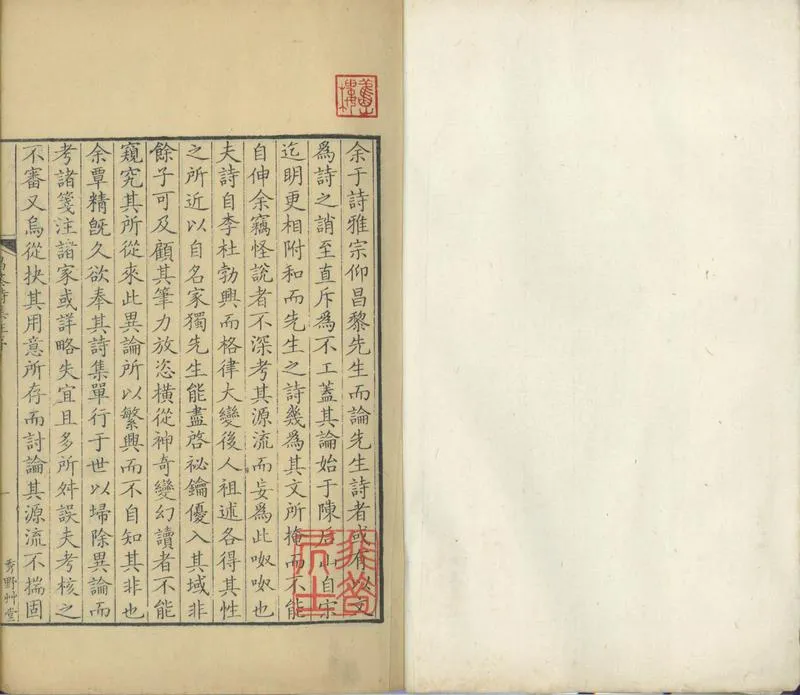 余于詩雅宗仰昌黎先生而論先生詩者或有以文
爲詩之誚至直斥爲不工蓋其論始于陳后山自宋
迄明更相附和而先生之詩幾爲其文所掩而不能
自伸余竊怪說者不深考其源流而妄爲此呶呶也
夫詩自李杜勃興而格律大變後人祖述各得其性
之所近以自名家獨先生能盡啓祕鑰優入其域非
餘子可及顧其筆力放恣橫從神奇變幻讀者不能
窺究其所從來此異論所以繁興而不自知其非也
余覃精旣久欲奉其詩集單行于世以埽除異論而
考諸箋注諸家或詳略失宜且多所舛誤夫考核之
不審又烏從抉其用意所存而討論其源流不揣固
秀野艸堂